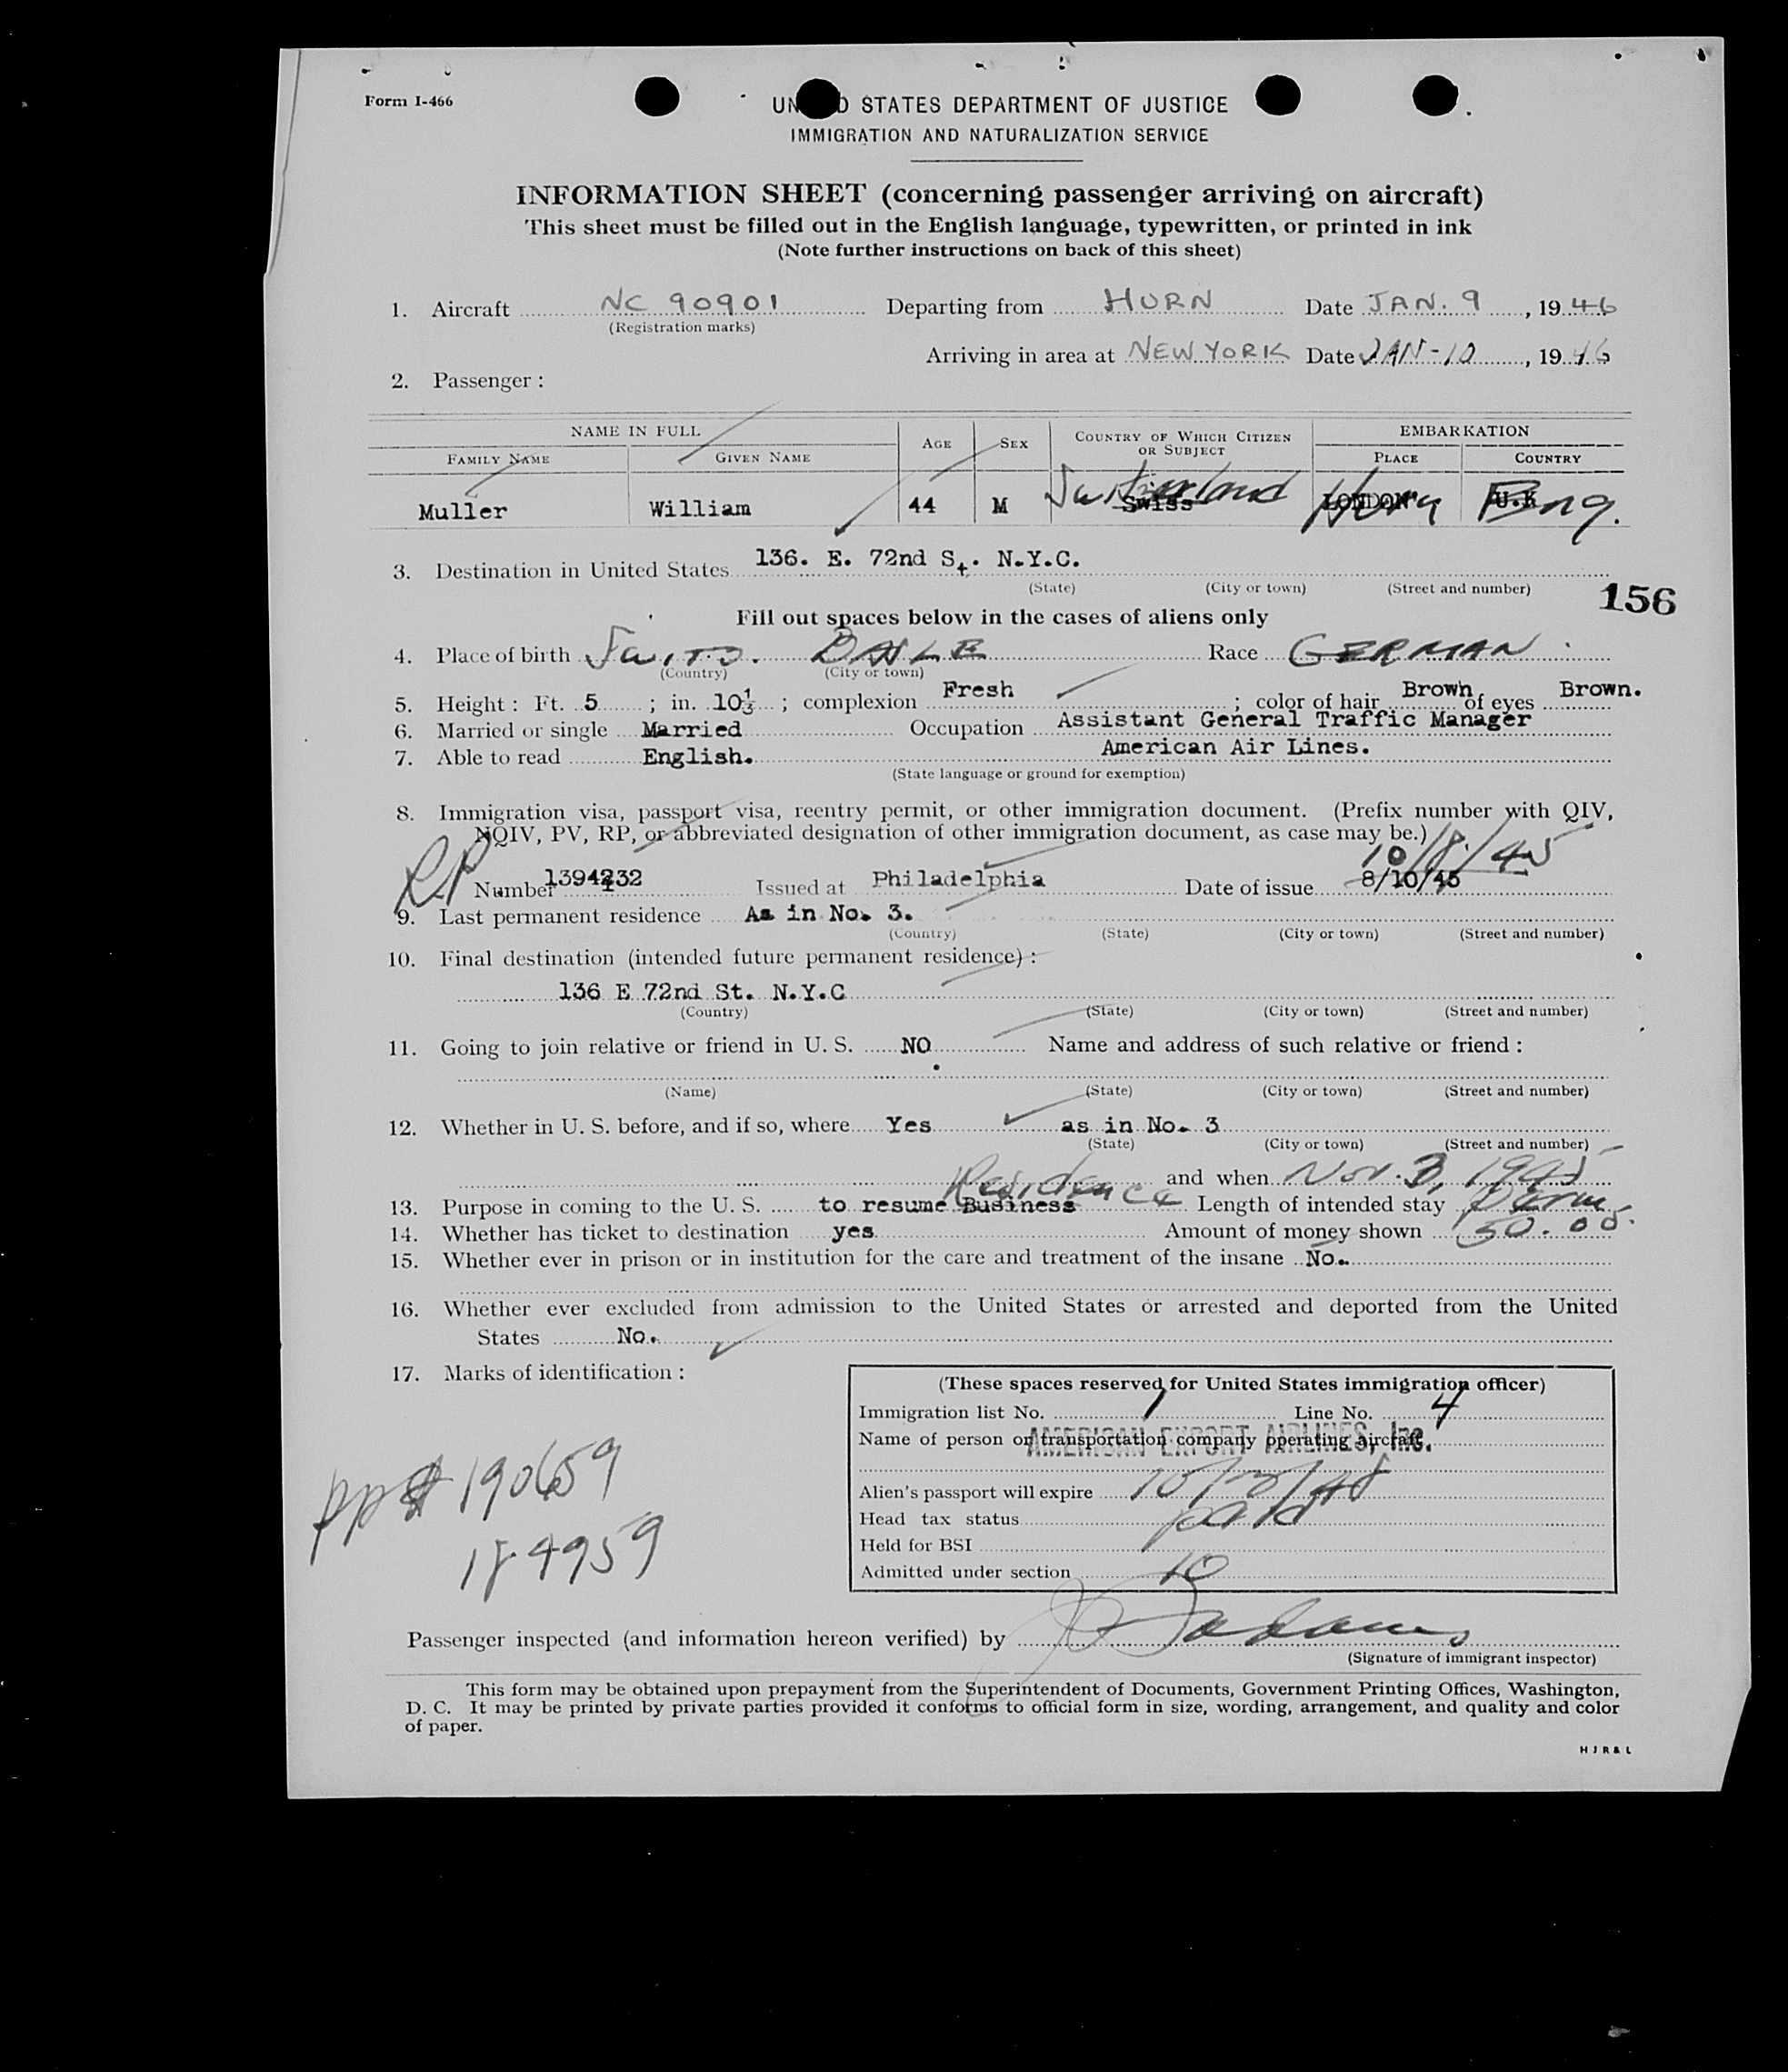 Form I-466
UNITED STATES DEPARTMENT OF JUSTICE
IMMIGRATION AND NATURALIZATION SERVICE
INFORMATION SHEET (concerning passenger arriving on aircraft)
This sheet must be filled out in the English language, typewritten, or printed in ink
(Note further instructions on back of this sheet)
1. Aircraft NC 90901 Departing from HURN Date JAN. 9, 1946
(Registration marks)
Arriving in area at NEW YORK Date JAN-10, 1946
2. Passenger:
NAME IN FULL AGE SEX COUNTRY OF WHICH CITIZEN OR SUBJECT EMBARKATION
FAMILY NAME GIVEN NAME PLACE COUNTRY
Switzerland Hurn Eng.
Muller William 44 M Swiss LONDON U.K
3. Destination in United States 136. E. 72nd St. N.Y.C.
(State) (City or town) (Street and number)
156
Fill out spaces below in the cases of aliens only
4. Place of birth Switz. BASLE Race GERMAN
(Country) (City or town)
5. Height: Ft. 5; in. 10 1/3; complexion Fresh; color of hair Brown of eyes Brown.
6. Married or single Married Occupation Assistant General Traffic Manager
7. Able to read English. American Air Lines.
(State language or ground for exemption)
8. Immigration visa, passport visa, reentry permit, or other immigration document. (Prefix number with QIV,
NQIV, PV, RP, or abbreviated designation of other immigration document, as case may be.)
10/8/45
RP Number 1394232 Issued at Philadelphia Date of issue 8/10/45
9. Last permanent residence As in No. 3.
(Country) (State) (City or town) (Street and number)
10. Final destination (intended future permanent residence):
136 E 72nd St. N.Y.C
(Country) (State) (City or town) (Street and number)
11. Going to join relative or friend in U. S. NO Name and address of such relative or friend:
(Name) (State) (City or town) (Street and number)
12. Whether in U. S. before, and if so, where Yes as in No. 3
(State) (City or town) (Street and number)
and when Nov. 3, 1945
Residence
13. Purpose in coming to the U. S. to resume Business Length of intended stay Perm.
14. Whether has ticket to destination yes Amount of money shown 50.00
15. Whether ever in prison or in institution for the care and treatment of the insane No.
16. Whether ever excluded from admission to the United States or arrested and deported from the United
States No.
17. Marks of identification:
(These spaces reserved for United States immigration officer)
Immigration list No. 1 Line No. 4
Name of person or transportation company operating aircraft
AMERICAN EXPORT AIRLINES, Inc.
Alien's passport will expire
Head tax status paid
Held for BSI
Admitted under section 10
pp# 190659
Passenger inspected (and information hereon verified) by
(Signature of immigrant inspector)
This form may be obtained upon prepayment from the Superintendent of Documents, Government Printing Offices, Washington,
D. C. It may be printed by private parties provided it conforms to official form in size, wording, arrangement, and quality and color
of paper.
H J R & L